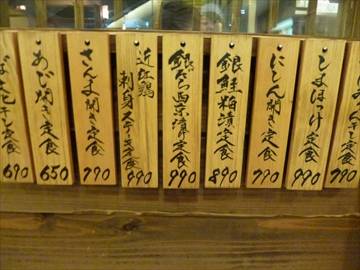 しまほっけ定食
790
にしん開き定食
790
銀鮭粕漬定食
890
銀だら西京漬け定食
990
近江鶏
刺身ステーキ定食
990
さんま開き定食
770
あじ開き定食
650
定食
690